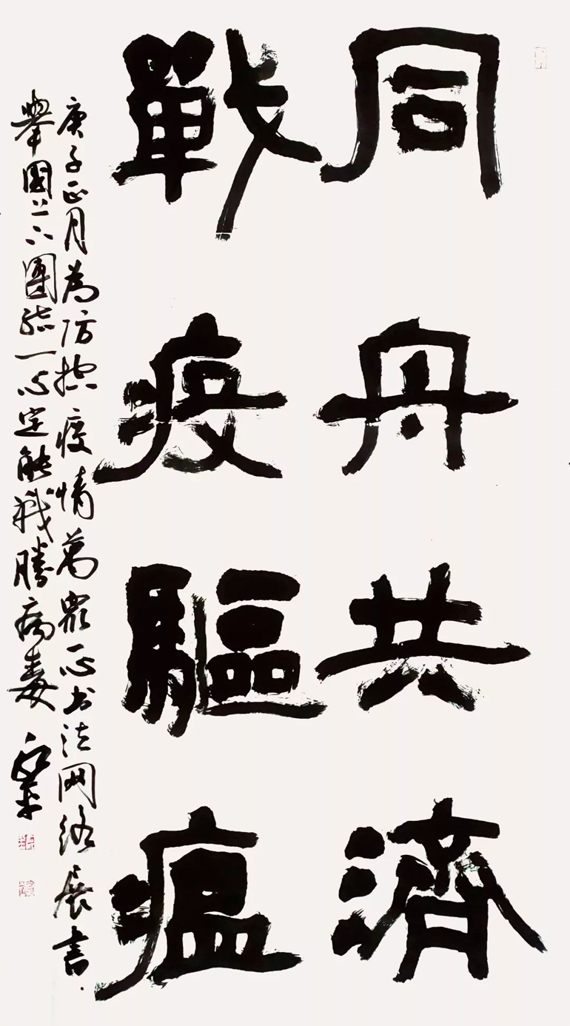 同舟共濟
戰疫驅瘟
庚子正月為防控疫情萬眾一心书法网络展書
舉國上下團結一心定能戰勝病毒